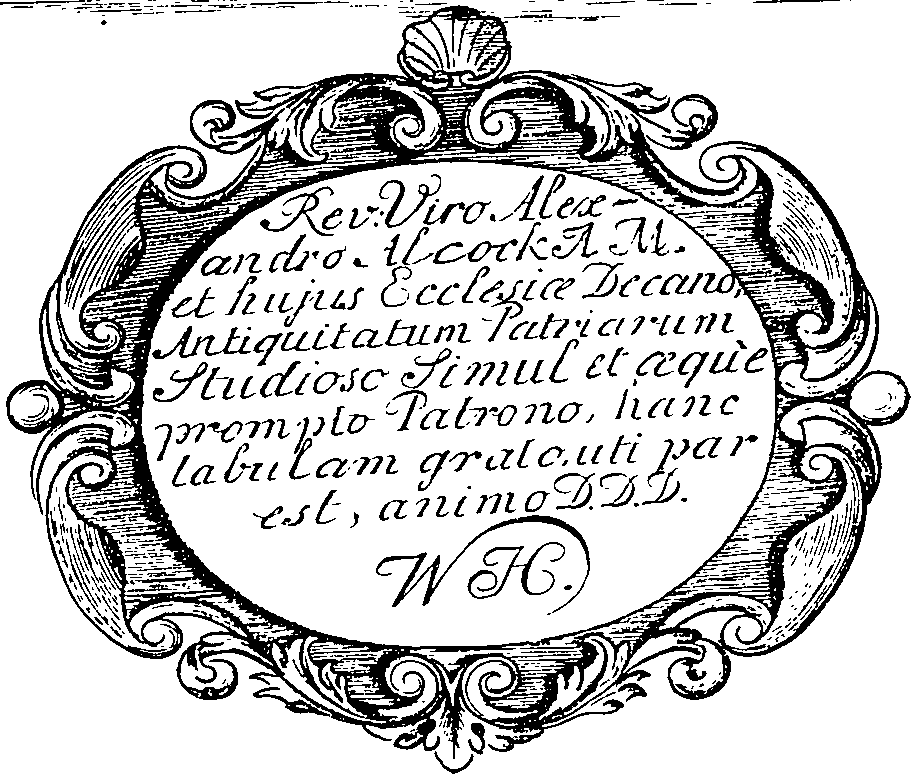 Rev. Viro Alex-
andro Alcock A M.
et hujus Ecclesiæ Decano,
Antiquitatum Patriarum
Studioso Simul et æquè
prompto Patrono, hanc
tabulam grato, uti par
est, animo D.D.D.
W H.